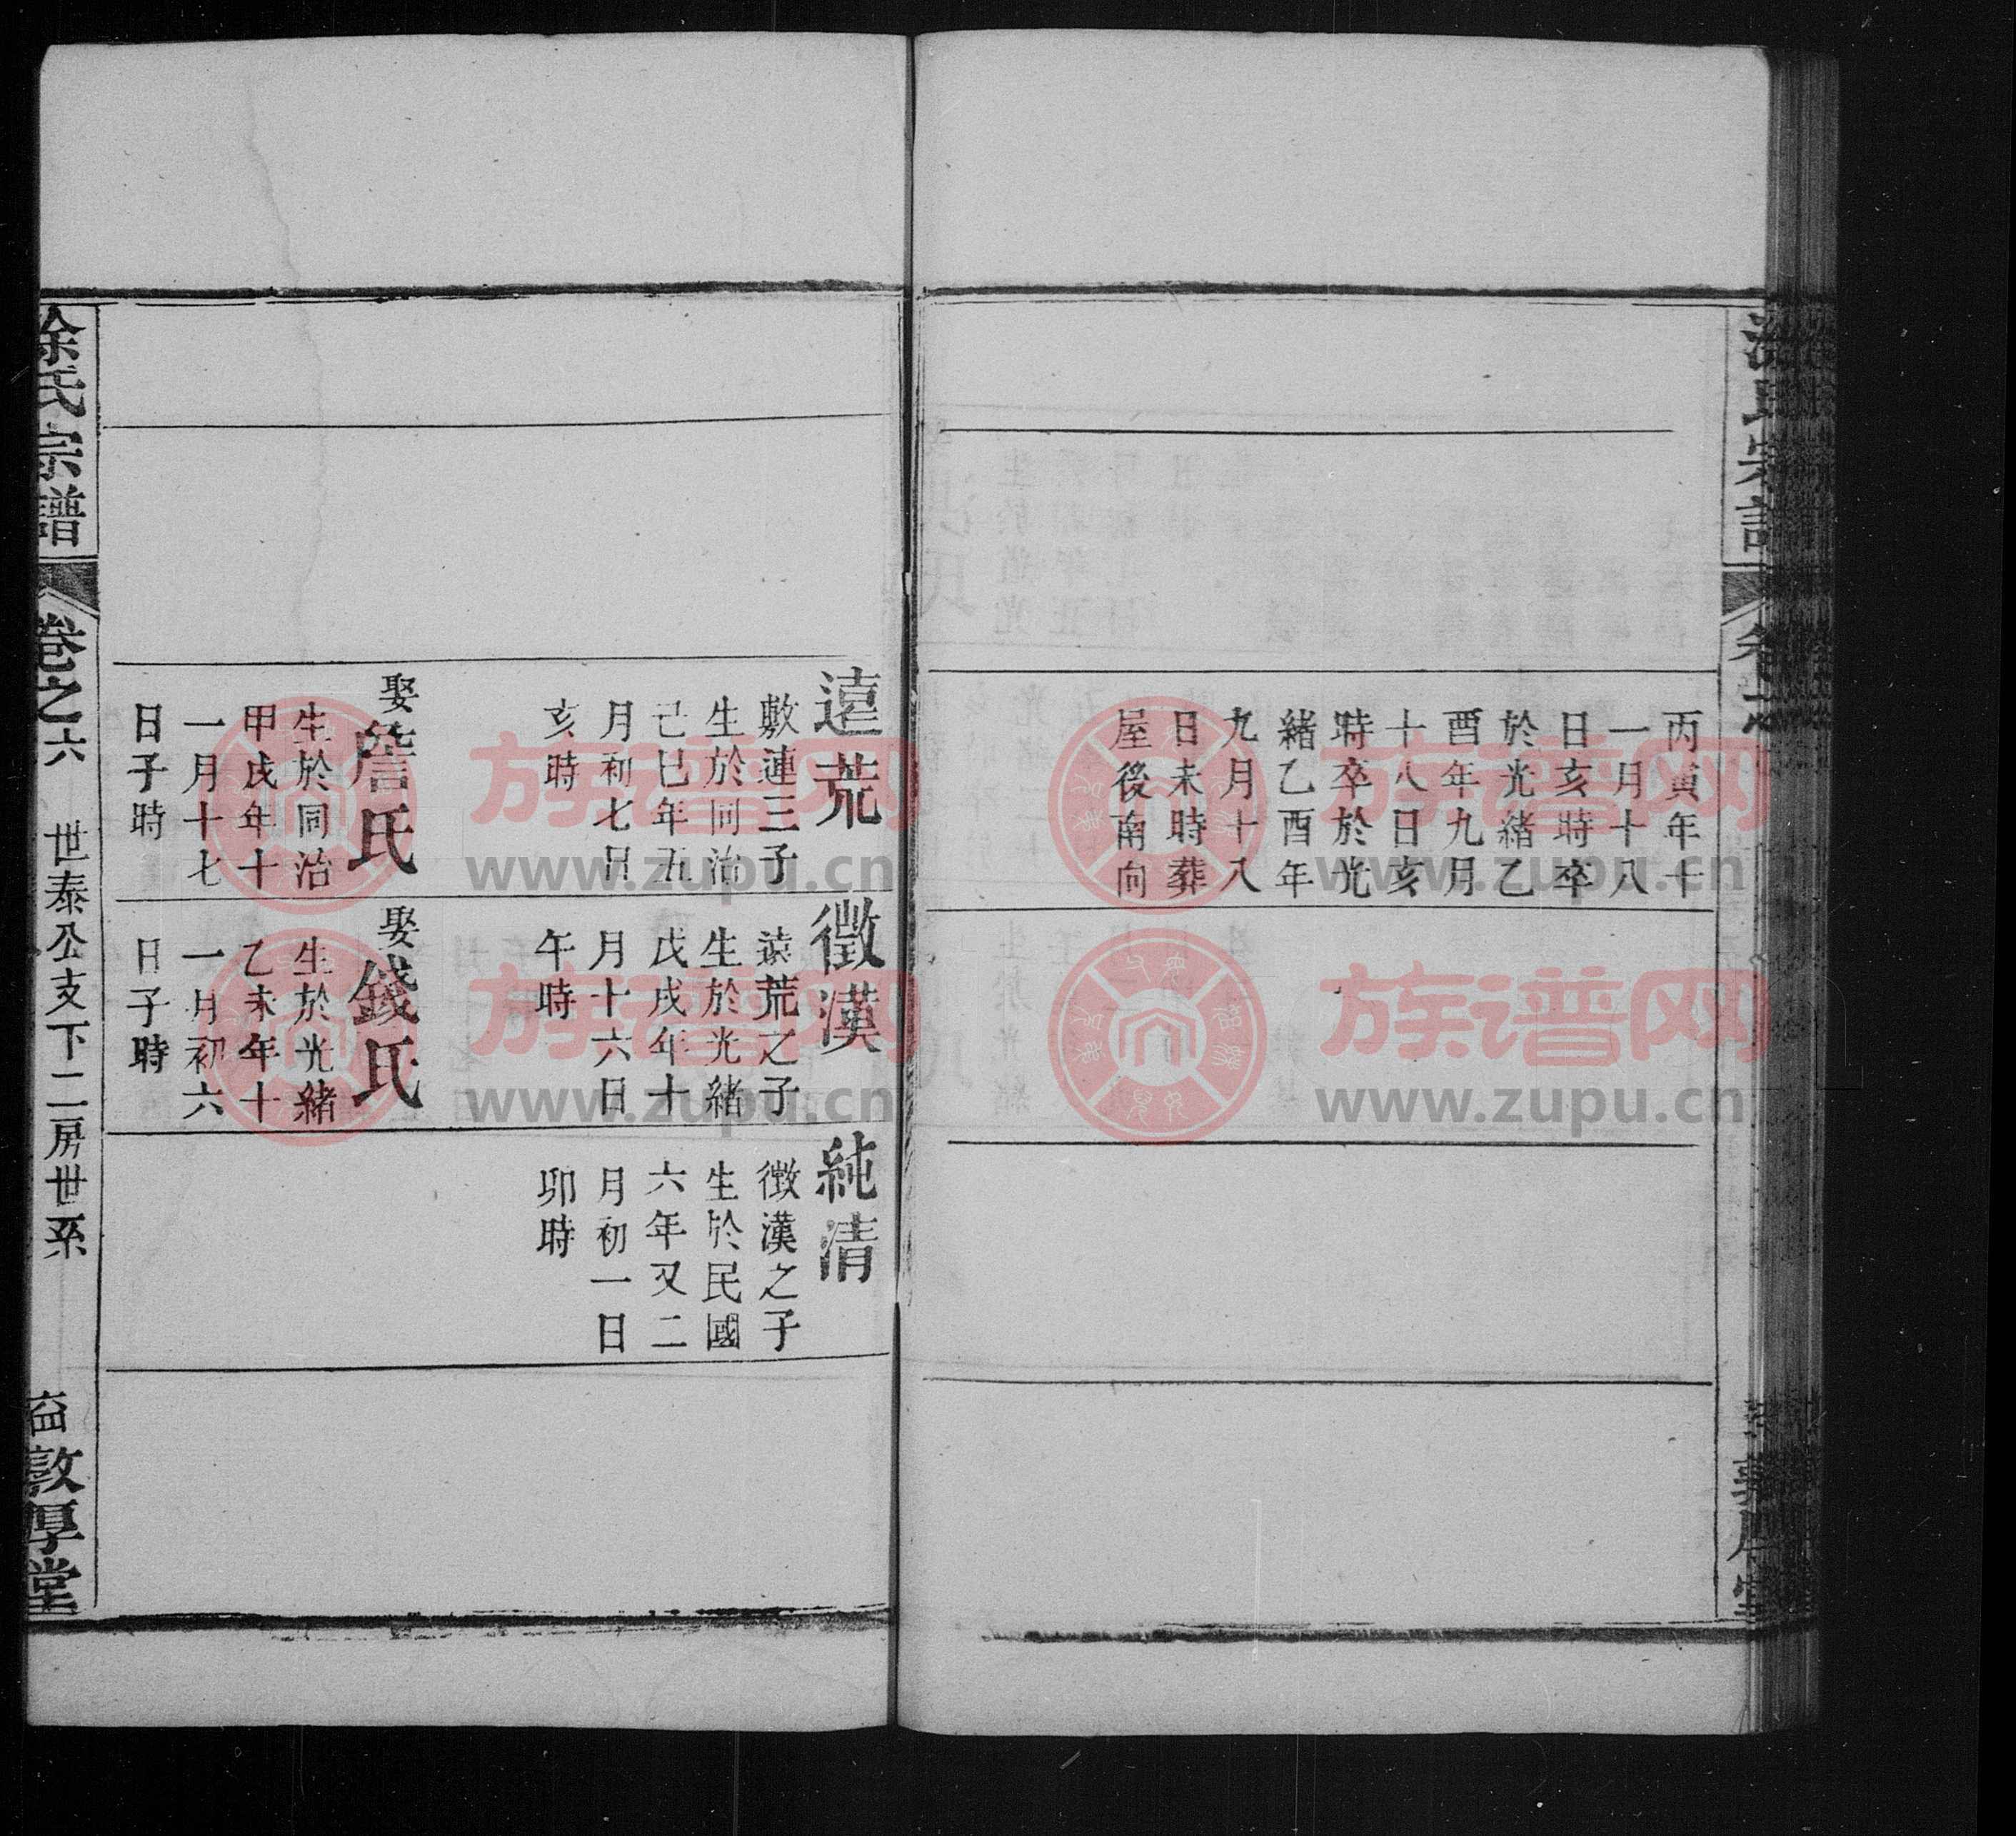 丙寅年十
一月十八
日亥時卒
於光緒乙
酉年九月
十八日亥
時卒於光
緒乙酉年
九月十八
日未時葬
屋後南向
遠荒
敷連三子
生於同治
己巳年五
月初七日
亥時
娶詹氏
生於同治
甲戌年十
一月十七
日子時
徵漢
遠荒之子
生於光緒
戊戌年十
月十六日
午時
娶錢氏
生於光緒
乙未年十
一月初六
日子時
純清
徵漢之子
生於民國
六年又二
月初一日
卯時
徐氏宗譜
卷之六
世泰公支下二房世系
敦厚堂
族谱网
www.zupu.cn
族谱网
www.zupu.cn
族谱网
www.zupu.cn
族谱网
www.zupu.cn